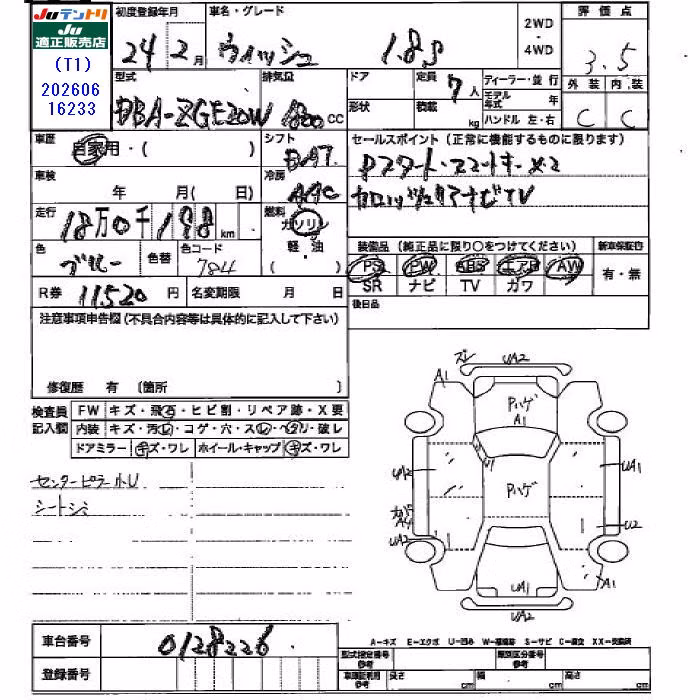 JUテントリ
JU
適正販売店
(T1)
202606
16233
初度登録年月
24年2月
車名・グレード
ウィッシュ 1.8S
2WD
・
4WD
評価点
3.5
型式
DBA-ZGE20W
排気量
1800cc
ドア
形状
定員
7人
積載
kg
ディーラー・並行
モデル年式 年
ハンドル 左・右
外装 内装
C C
車歴
自家用・( )
シフト
車検
年 月(日)
冷房
AAC
走行
18万0千198km
燃料
ガソリン
軽・油
( )
色
ブルー
色替
色コード
784
R券 11,520円
名変期限 月 日
セールスポイント(正常に機能するものに限ります)
Pスタート・スマートキー×2
カロッツェリアナビTV
装備品(純正品に限り○をつけてください)
新車保証書
PS PW ABS エアB AW
SR ナビ TV カワ
有・無
後日品
注意事項申告欄(不具合内容等は具体的に記入して下さい)
修復歴 有 〔箇所 〕
検査員
記入欄
FW キズ・飛石・ヒビ割・リペア跡・X要
内装 キズ・汚レ・コゲ・穴・スレ・ヘタリ・破レ
ドアミラー キズ・ワレ ホイール・キャップ キズ・ワレ
センターピラー小U
シートシミ
ズレ UA2
A1
Pハゲ
A1
UA2
UA1
Pハゲ
A4
U2
UA2
UA1
A1
車台番号
0128226
登録番号
A-キズ E-エクボ U-凹み W-補修跡 S-サビ C-腐食 XX-交換済
型式指定番号
参考
類別区分番号
参考
車検証記載
参考
長さ cm
幅 cm
高さ cm